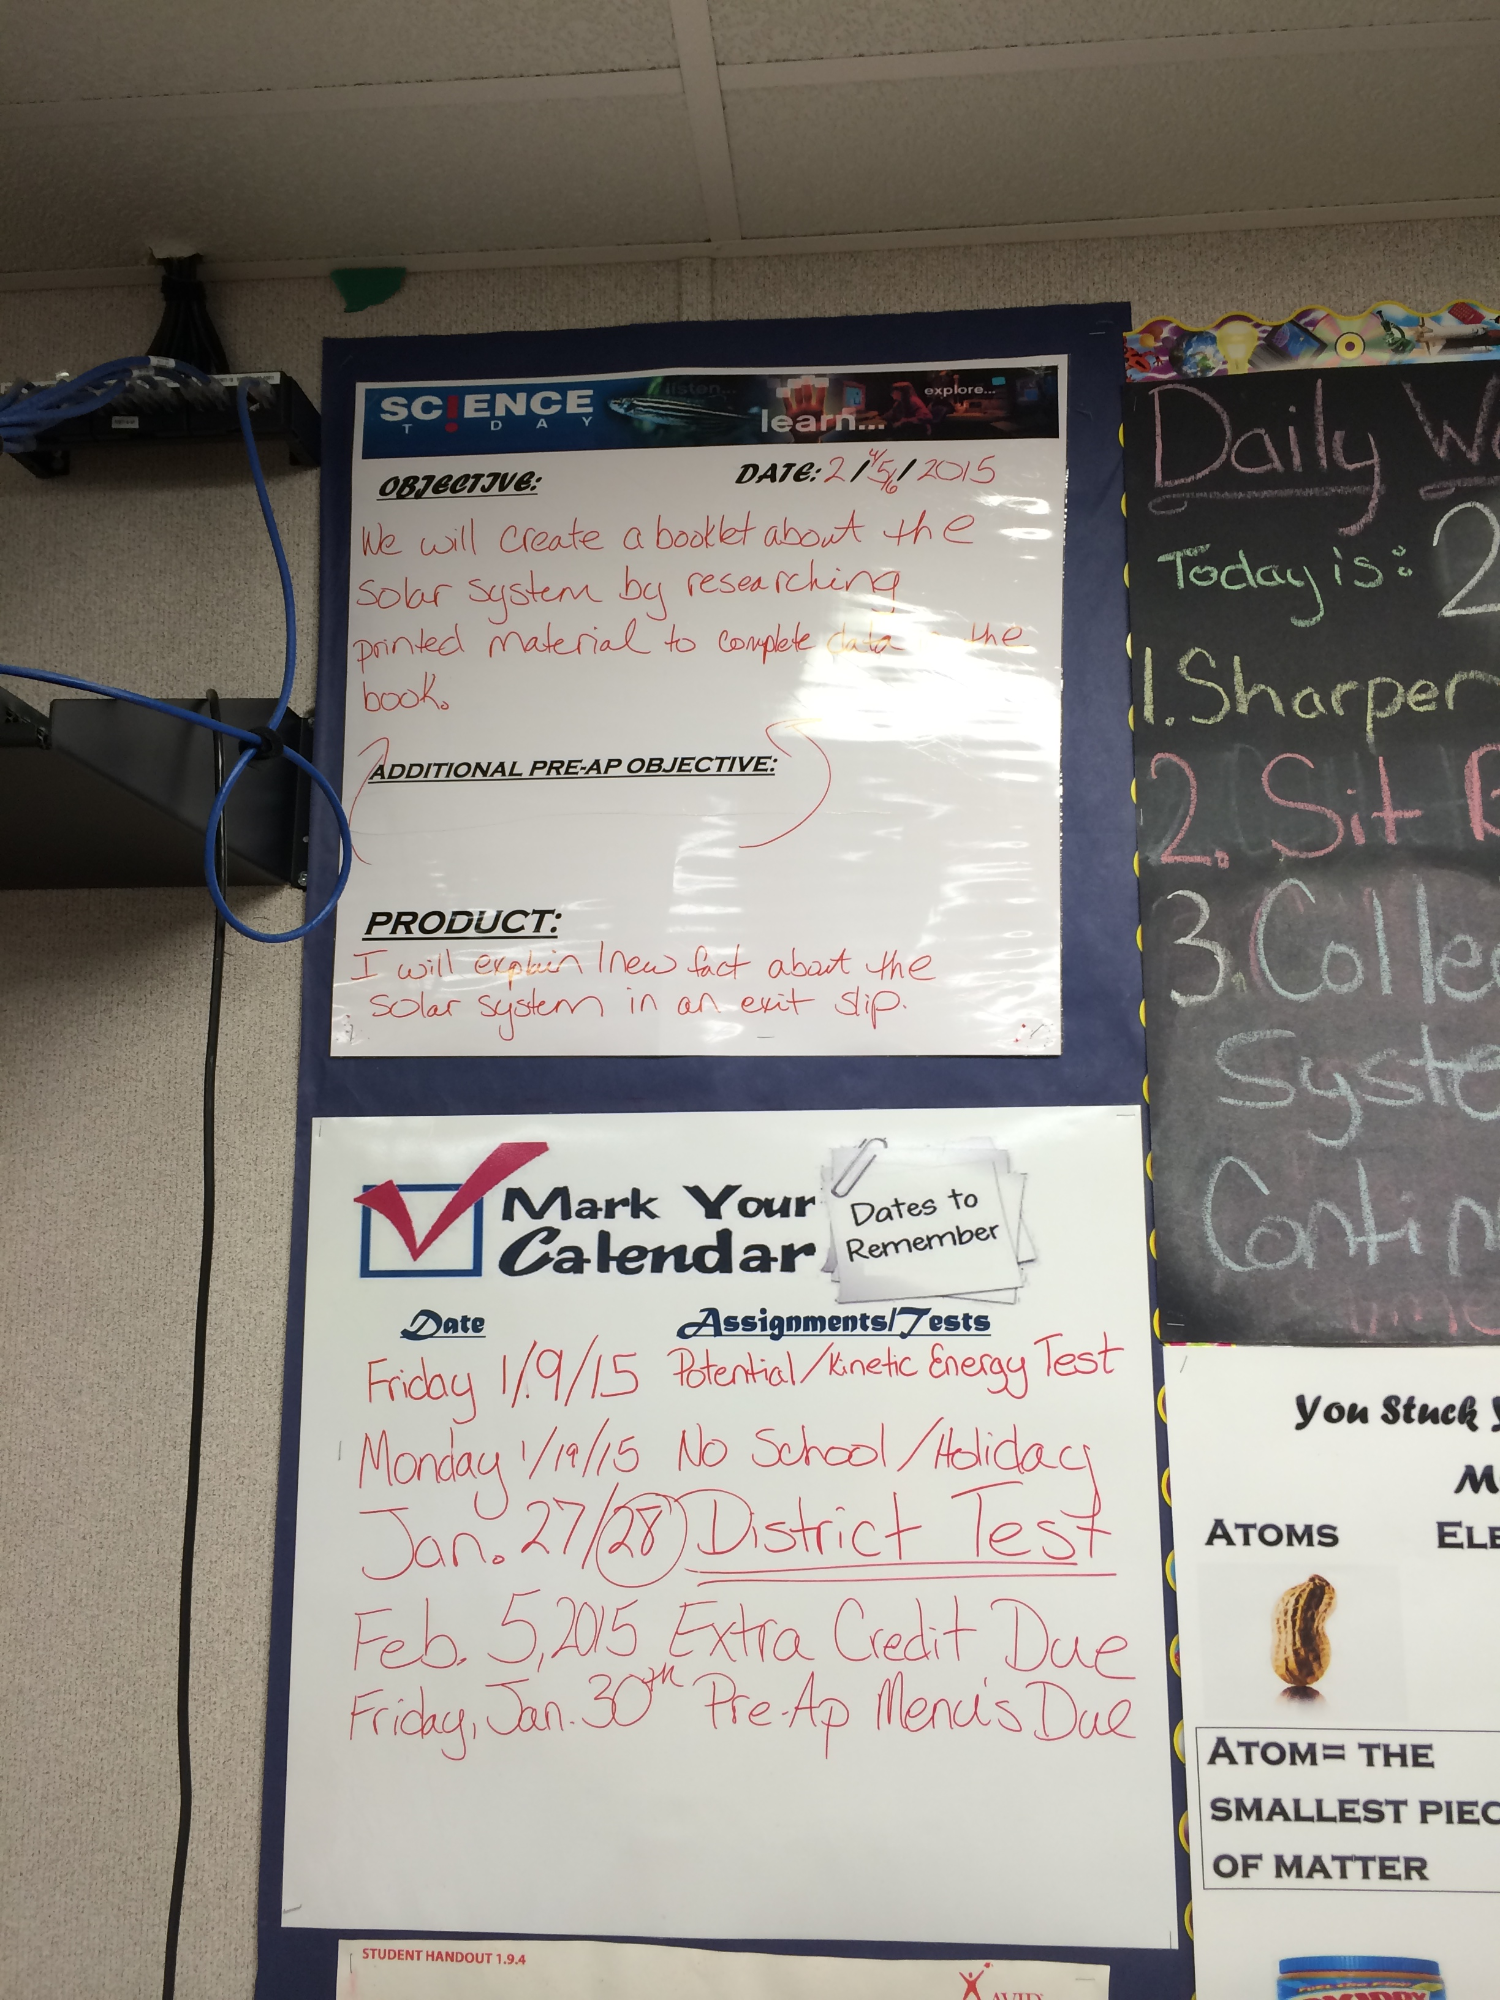 SC!ENCE
T DAY
listen...
learn...
explore...
OBJECTIVE:
DATE: 2/4/5/6/2015
We will create a booklet about the
solar system by researching
printed material to complete data the
book.
ADDITIONAL PRE-AP OBJECTIVE:
PRODUCT:
I will explain 1 new fact about the
solar system in an exit slip.
Mark Your
Calendar
Dates to
Remember
Date Assignments/Tests
Friday 1/9/15 Potential/Kinetic Energy Test
Monday 1/19/15 No School/Holiday
Jan. 27/28 District Test
Feb. 5, 2015 Extra Credit Due
Friday, Jan. 30th Pre-Ap Menu's Due
STUDENT HANDOUT 1.9.4
AVID
Daily W
Today is: 2
1. Sharpen
2. Sit
3. Collec
Syste
Contin
time
You Stuck
M
ATOMS ELE
ATOM= THE
SMALLEST PIEC
OF MATTER